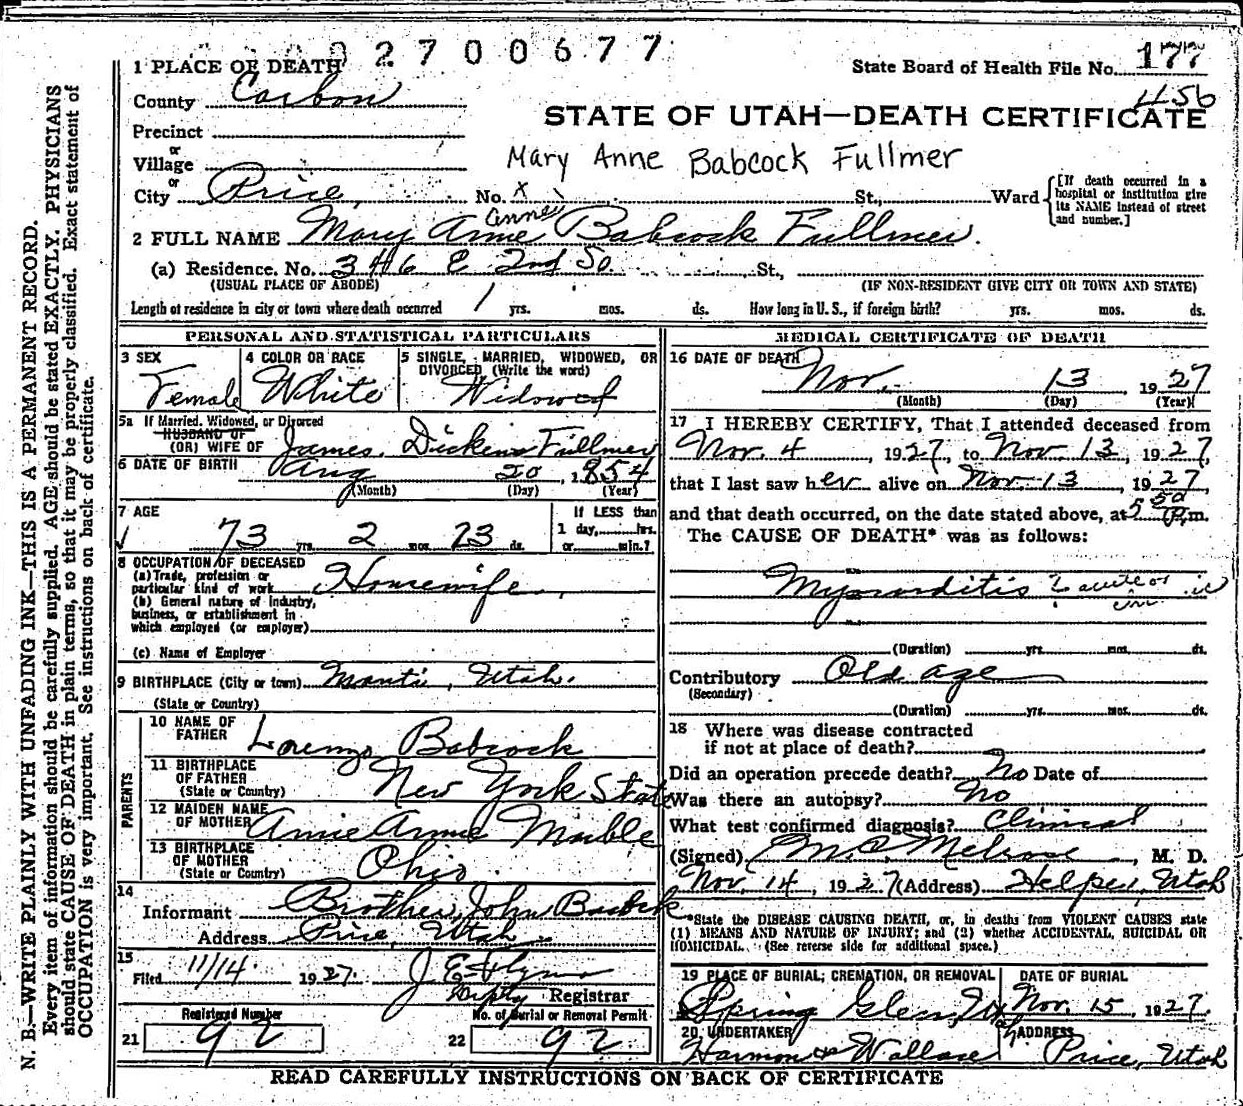 2700677
1 PLACE OF DEATH
State Board of Health File No. 177
456
County Carbon
STATE OF UTAH—DEATH CERTIFICATE
Precinct
or
Village
Mary Anne Babcock Fullmer
or
City Price, No. x St., Ward
[If death occurred in a hospital or institution give its NAME instead of street and number.]
Anne
2 FULL NAME Mary Anne Babcock Fullmer.
(a) Residence. No. 346 E 2nd So. St.,
(USUAL PLACE OF ABODE) (IF NON-RESIDENT GIVE CITY OR TOWN AND STATE)
Length of residence in city or town where death occurred 1 yrs. mos. ds. How long in U. S., if foreign birth? yrs. mos. ds.
PERSONAL AND STATISTICAL PARTICULARS
3 SEX 4 COLOR OR RACE 5 SINGLE, MARRIED, WIDOWED, OR
DIVORCED (Write the word)
Female White Widowed
5a If Married, Widowed, or Divorced
HUSBAND OF
(OR) WIFE OF James Dickins Fullmer
6 DATE OF BIRTH Aug 20, 1854
(Month) (Day) (Year)
7 AGE If LESS than
73 yrs. 2 mos. 23 ds. 1 day, hrs.
or min.?
8 OCCUPATION OF DECEASED
(a) Trade, profession or
particular kind of work Housewife
(b) General nature of industry,
business, or establishment in
which employed (or employer)
(c) Name of Employer
9 BIRTHPLACE (City or town) Manti, Utah.
(State or Country)
PARENTS
10 NAME OF
FATHER Lorenzo Babcock
11 BIRTHPLACE
OF FATHER
(State or Country) New York State
12 MAIDEN NAME
OF MOTHER Amie Marble
13 BIRTHPLACE
OF MOTHER
(State or Country) Ohio
14
Informant Brother, John Babcock
Address Price, Utah
15
Filed 11/14. 1927. J E Flynn
Deputy Registrar
Registered Number No. of Burial or Removal Permit
21 92 22 92
MEDICAL CERTIFICATE OF DEATH
16 DATE OF DEATH
Nov. 13, 1927
(Month) (Day) (Year)
17 I HEREBY CERTIFY, That I attended deceased from
Nov. 4, 1927, to Nov. 13, 1927,
that I last saw her alive on Nov. 13, 1927,
and that death occurred, on the date stated above, at 5 50 P.m.
The CAUSE OF DEATH* was as follows:
Myocarditis ? acute or
(Duration) yrs. mos. ds.
Contributory Old age
(Secondary)
(Duration) yrs. mos. ds.
18 Where was disease contracted
if not at place of death?
Did an operation precede death? No Date of
Was there an autopsy? No
What test confirmed diagnosis? Clinical
(Signed) Melrose, M. D.
Nov. 14, 1927 (Address) Helper, Utah
*State the DISEASE CAUSING DEATH, or, in deaths from VIOLENT CAUSES state
(1) MEANS AND NATURE OF INJURY; and (2) whether ACCIDENTAL, SUICIDAL OR
HOMICIDAL. (See reverse side for additional space.)
19 PLACE OF BURIAL, CREMATION, OR REMOVAL DATE OF BURIAL
Spring Glen, Utah Nov. 15, 1927.
20 UNDERTAKER ADDRESS
Harmon & Wallace Price, Utah
READ CAREFULLY INSTRUCTIONS ON BACK OF CERTIFICATE
N. B.—WRITE PLAINLY WITH UNFADING INK—THIS IS A PERMANENT RECORD.
Every item of information should be carefully supplied. AGE should be stated EXACTLY. PHYSICIANS
should state CAUSE OF DEATH in plain terms, so that it may be properly classified. Exact statement of
OCCUPATION is very important. See instructions on back of certificate.